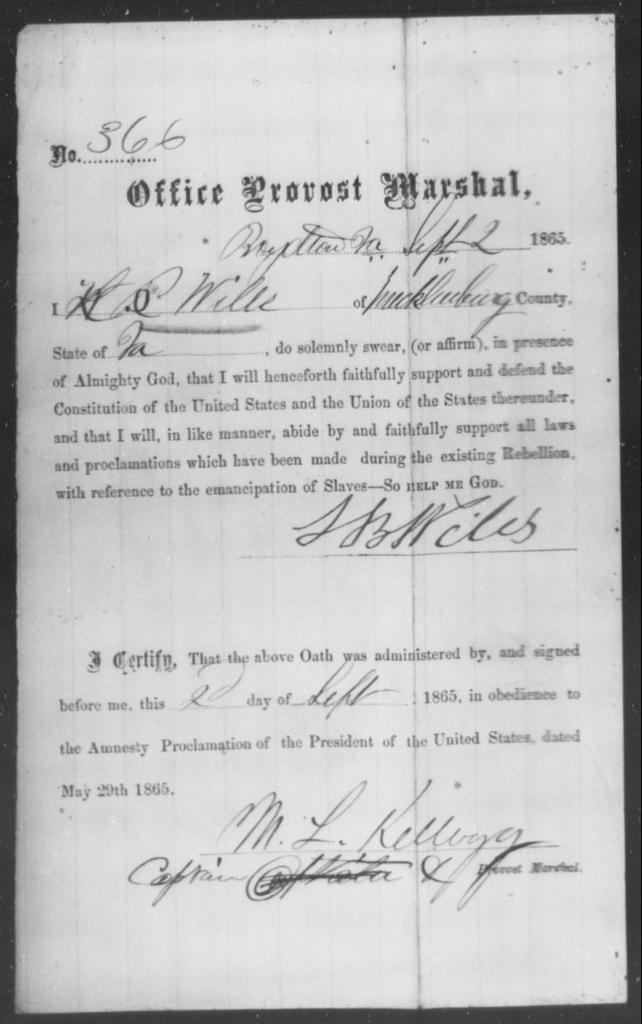 No. 366
Office Provost Marshal,
Boydton Va Sept 2 1865.
I Wills of Mecklenburg County,
State of Va, do solemnly swear, (or affirm), in presence
of Almighty God, that I will henceforth faithfully support and defend the
Constitution of the United States and the Union of the States thereunder,
and that I will, in like manner, abide by and faithfully support all laws
and proclamations which have been made during the existing Rebellion,
with reference to the emancipation of Slaves—So HELP ME GOD.
I Certify, That the above Oath was administered by, and signed
before me, this 2d day of Sept 1865, in obedience to
the Amnesty Proclamation of the President of the United States, dated
May 29th 1865.
M. L. Kellogg
Captain & Provost Marshal.